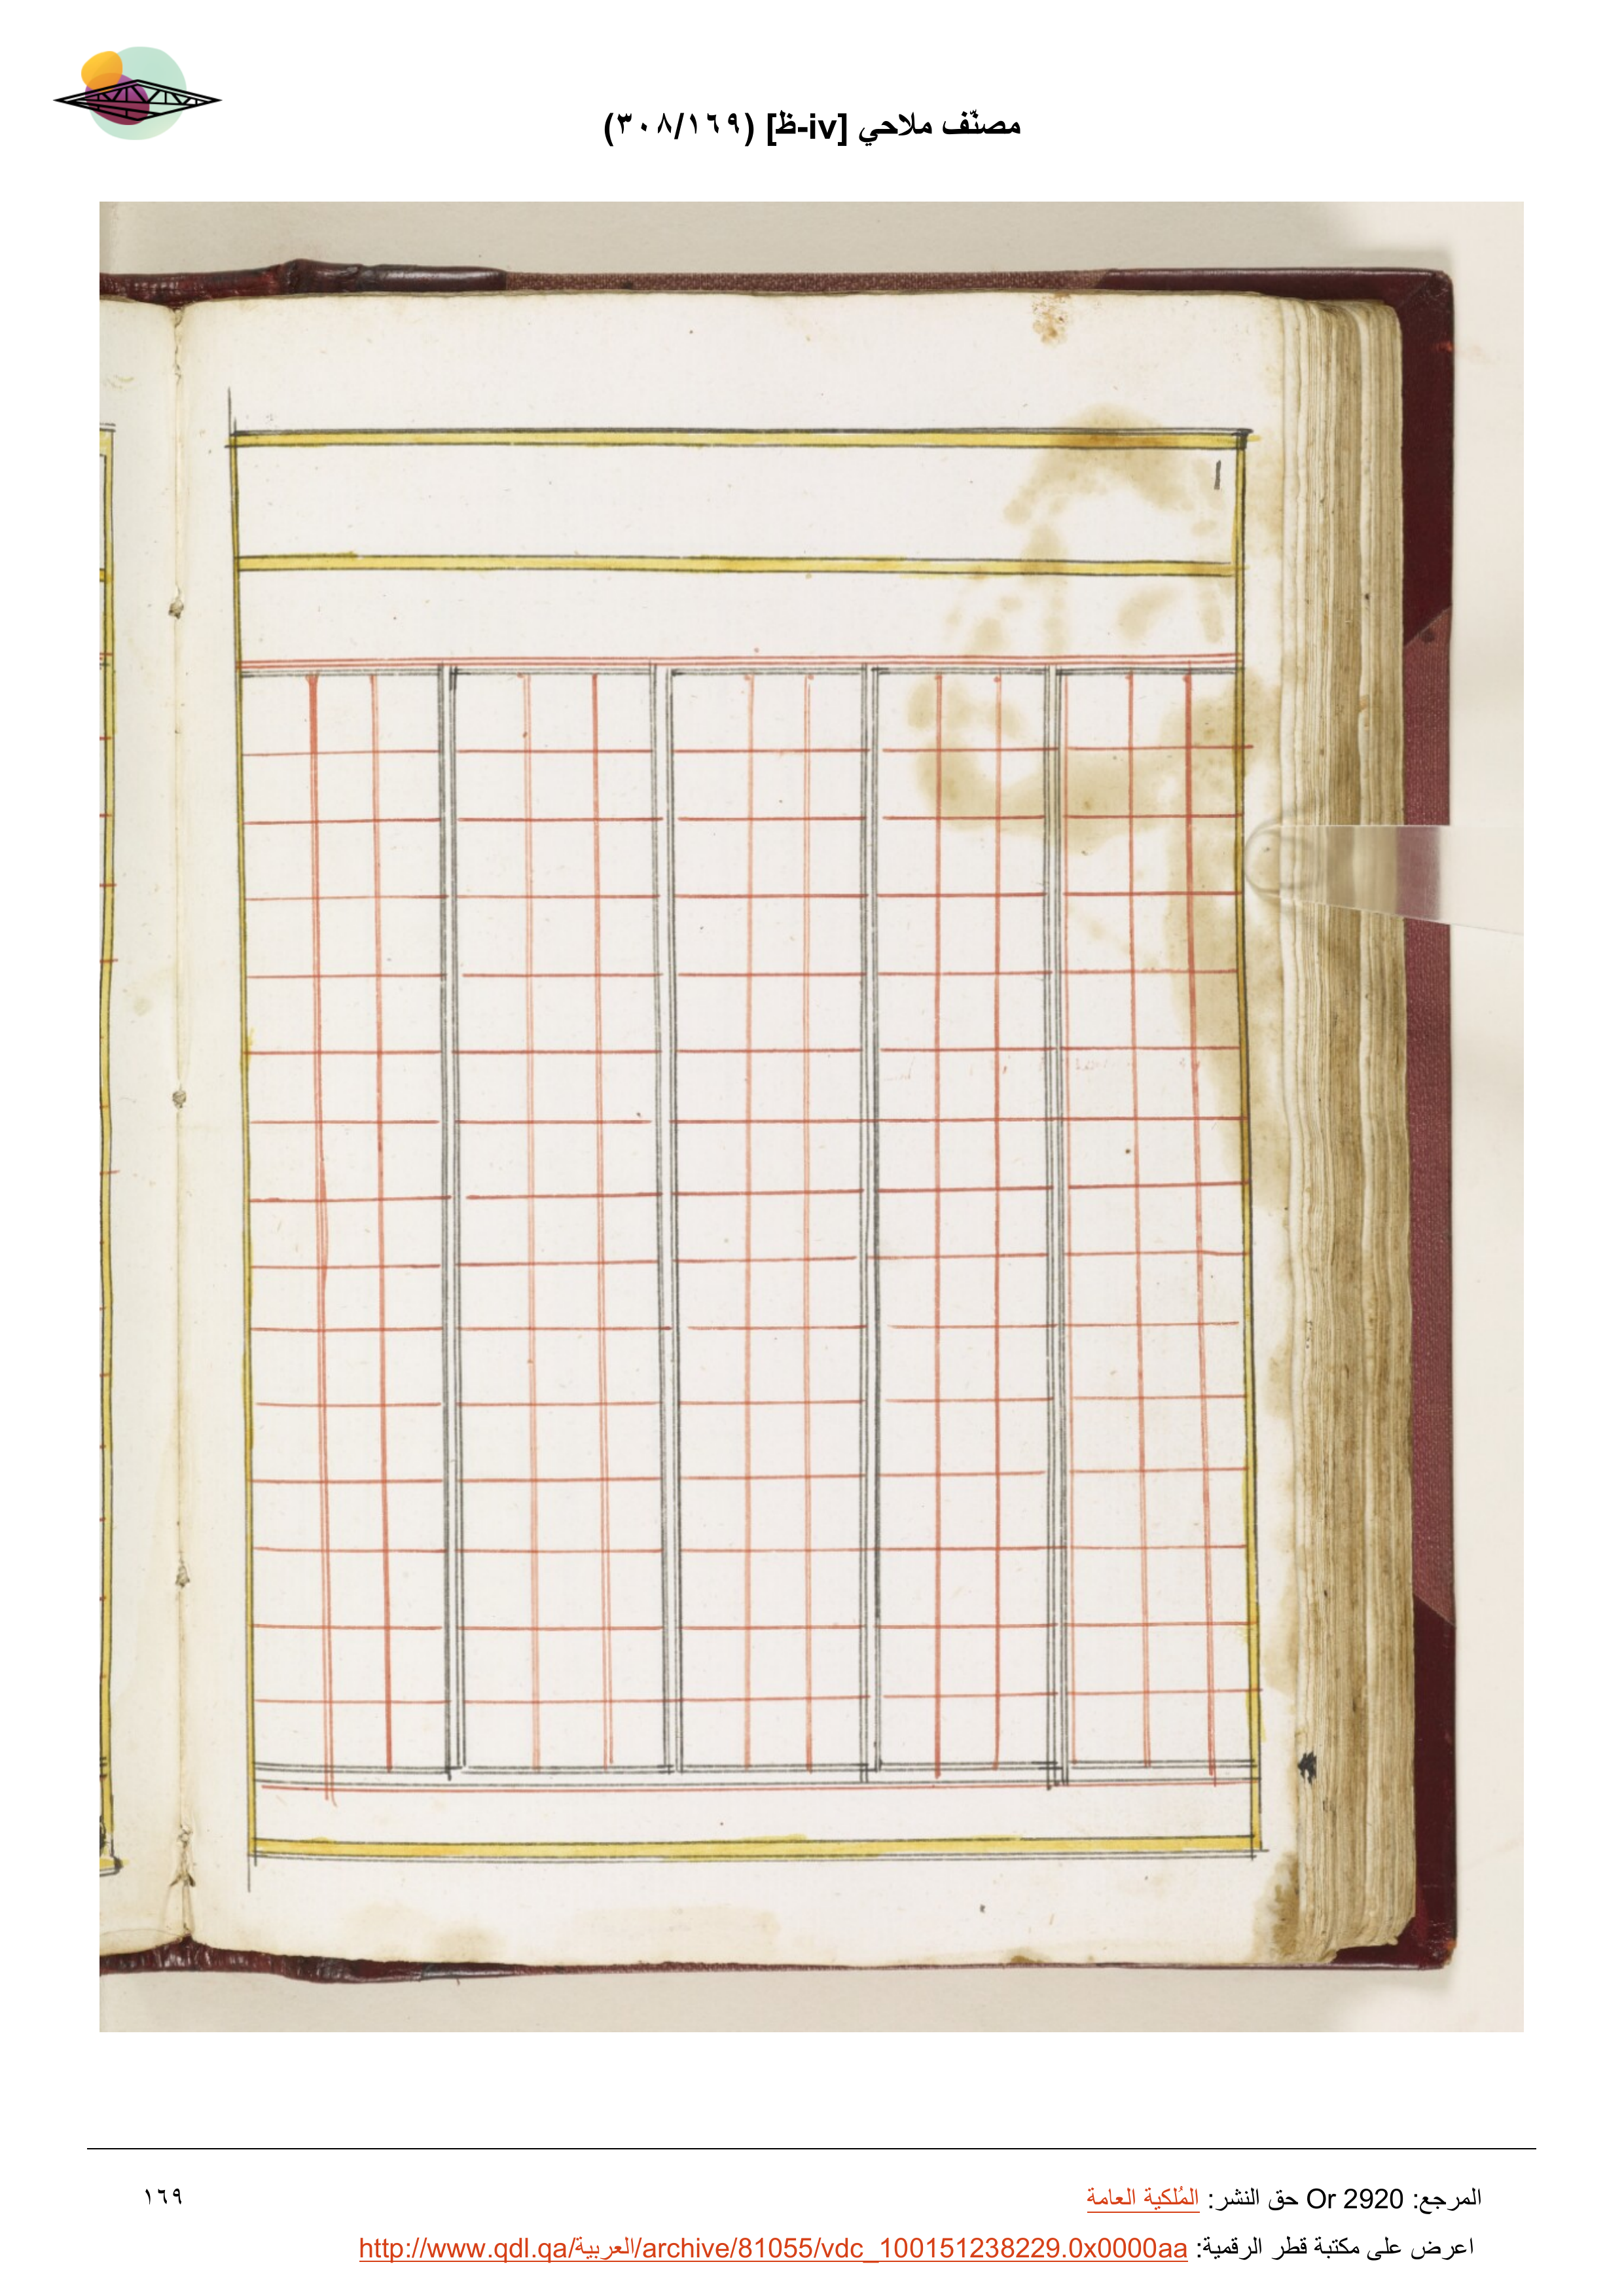 مصنّف ملاحي [iv-ظ] (٣٠٨/١٦٩)
ا
المرجع: Or 2920 حق النشر: المُلكية العامة
١٦٩
اعرض على مكتبة قطر الرقمية: http://www.qdl.qa/العربية/archive/81055/vdc_100151238229.0x0000aa